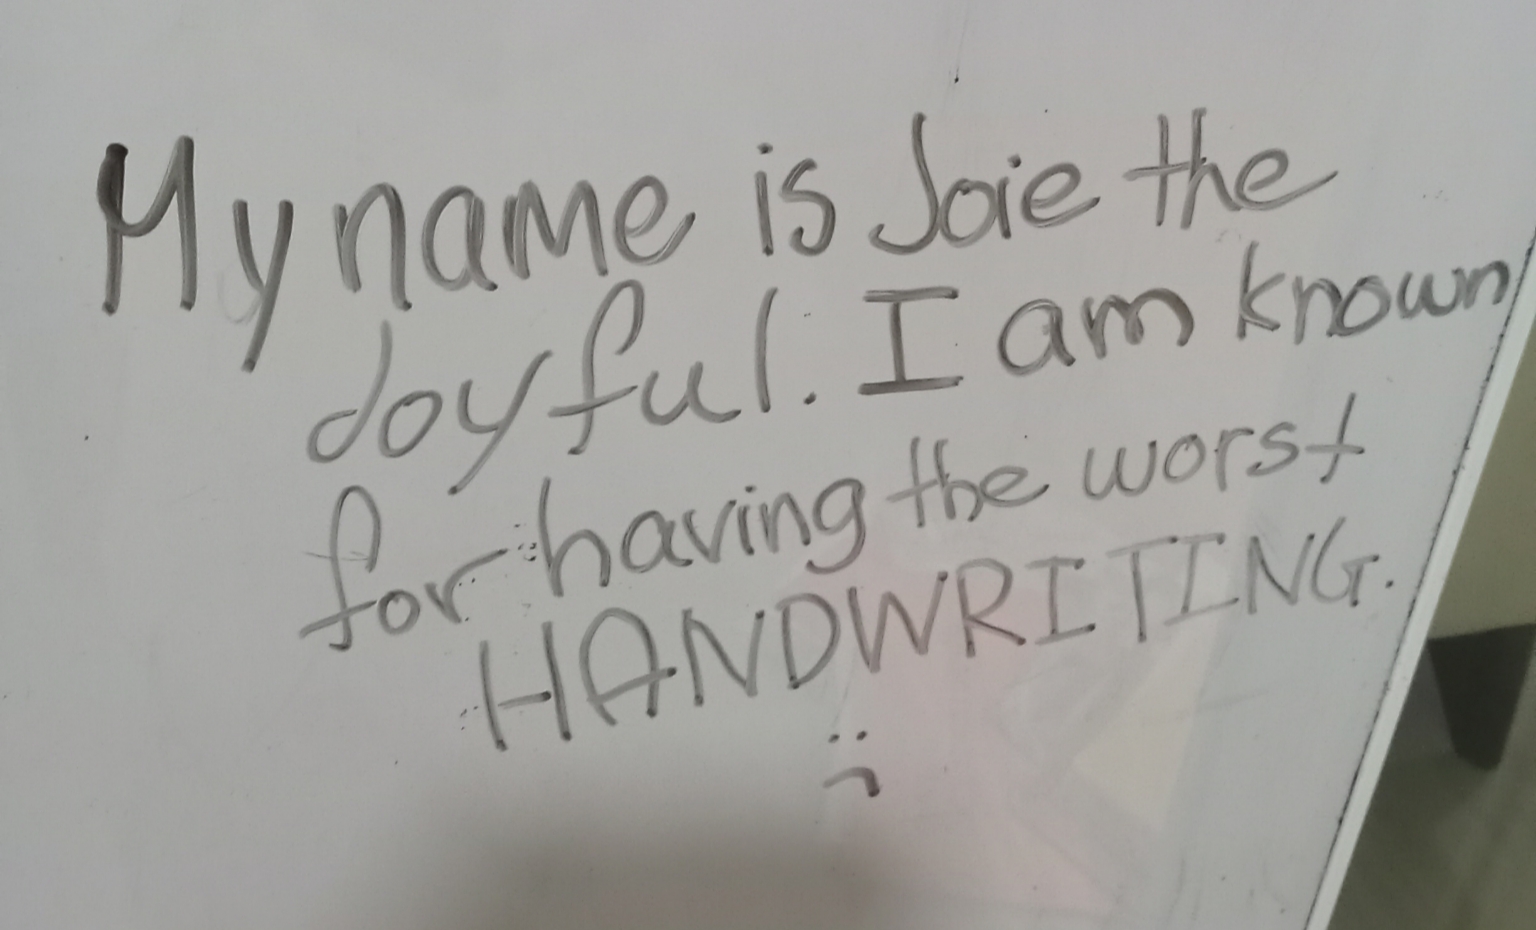 My name is Joie the
Joyful. I am known
for having the worst
HANDWRITING.
:(